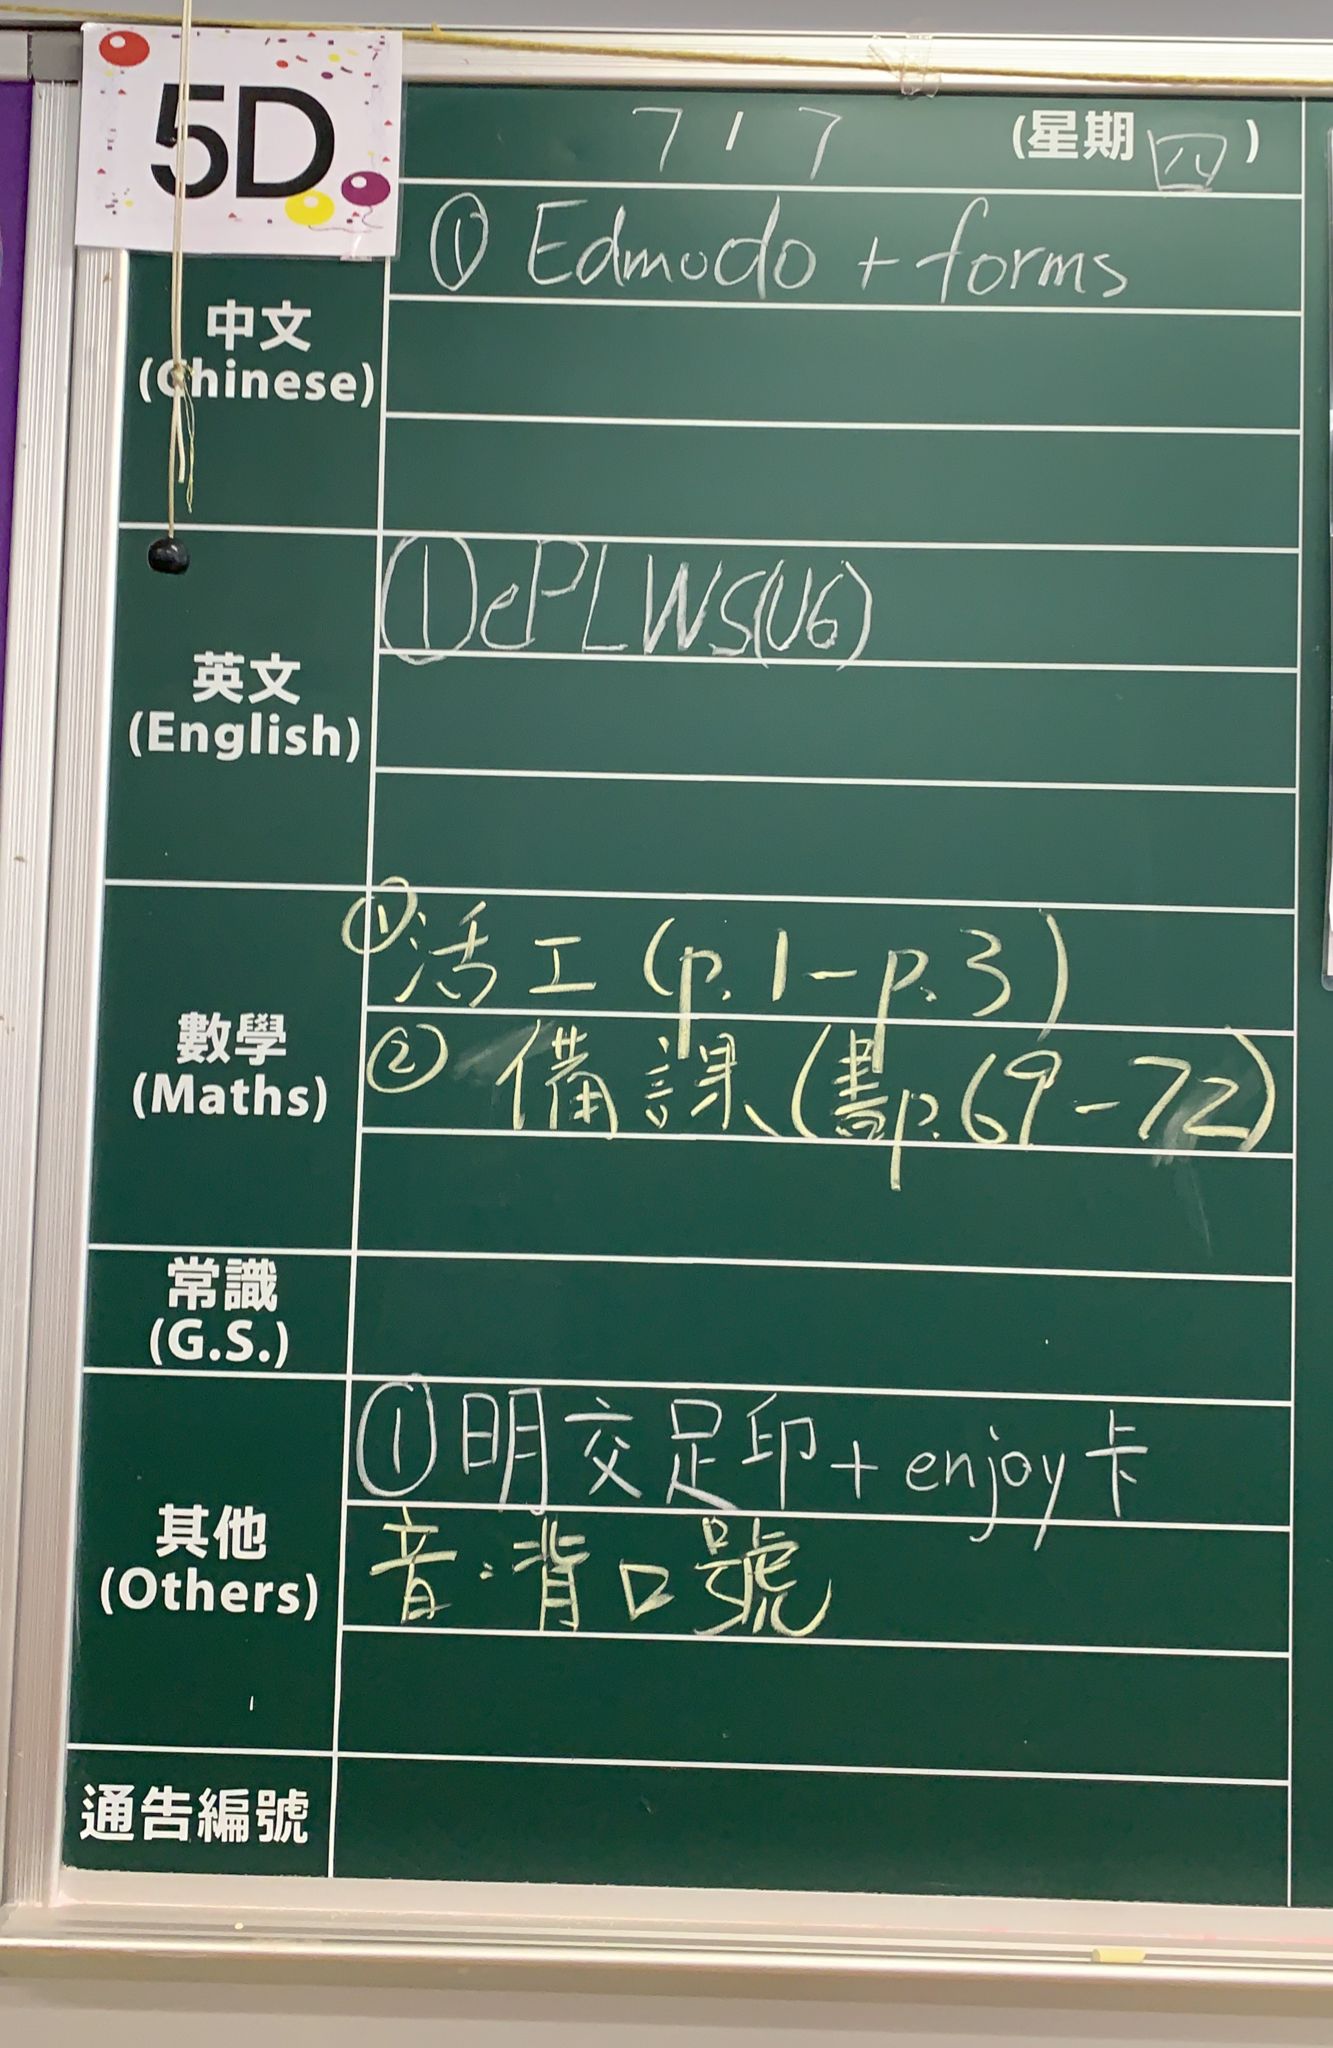 5D
7/7 (星期四)
中文
(Chinese)
① Edmodo + forms
英文
(English)
① ePLWS(U6)
數學
(Maths)
① 活工 (p.1-p.3)
② 備課 (書p.69-72)
常識
(G.S.)
其他
(Others)
① 明交足印 + enjoy卡
音:背口號
通告編號